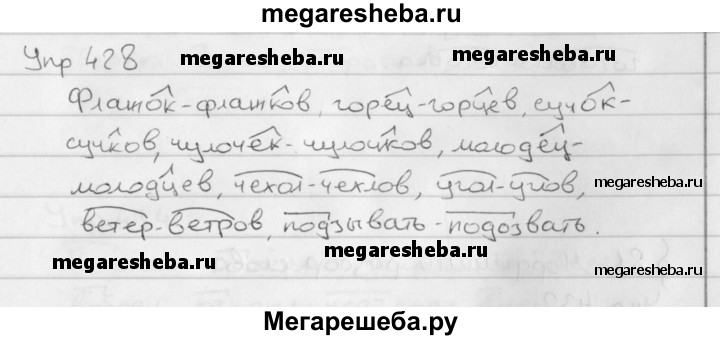 megaresheba.ru
Упр 428 megaresheba.ru megaresheba.ru
Флажок-флажков, горец-горцев, сучок-
сучков, чулочек-чулочков, молодец-
молодцев, чехол-чехлов, угол-углов, megaresheba.ru
ветер-ветров, подзывать-подозвать.
megaresheba.ru megaresheba.ru megaresheba.ru
Мегарешеба.ру